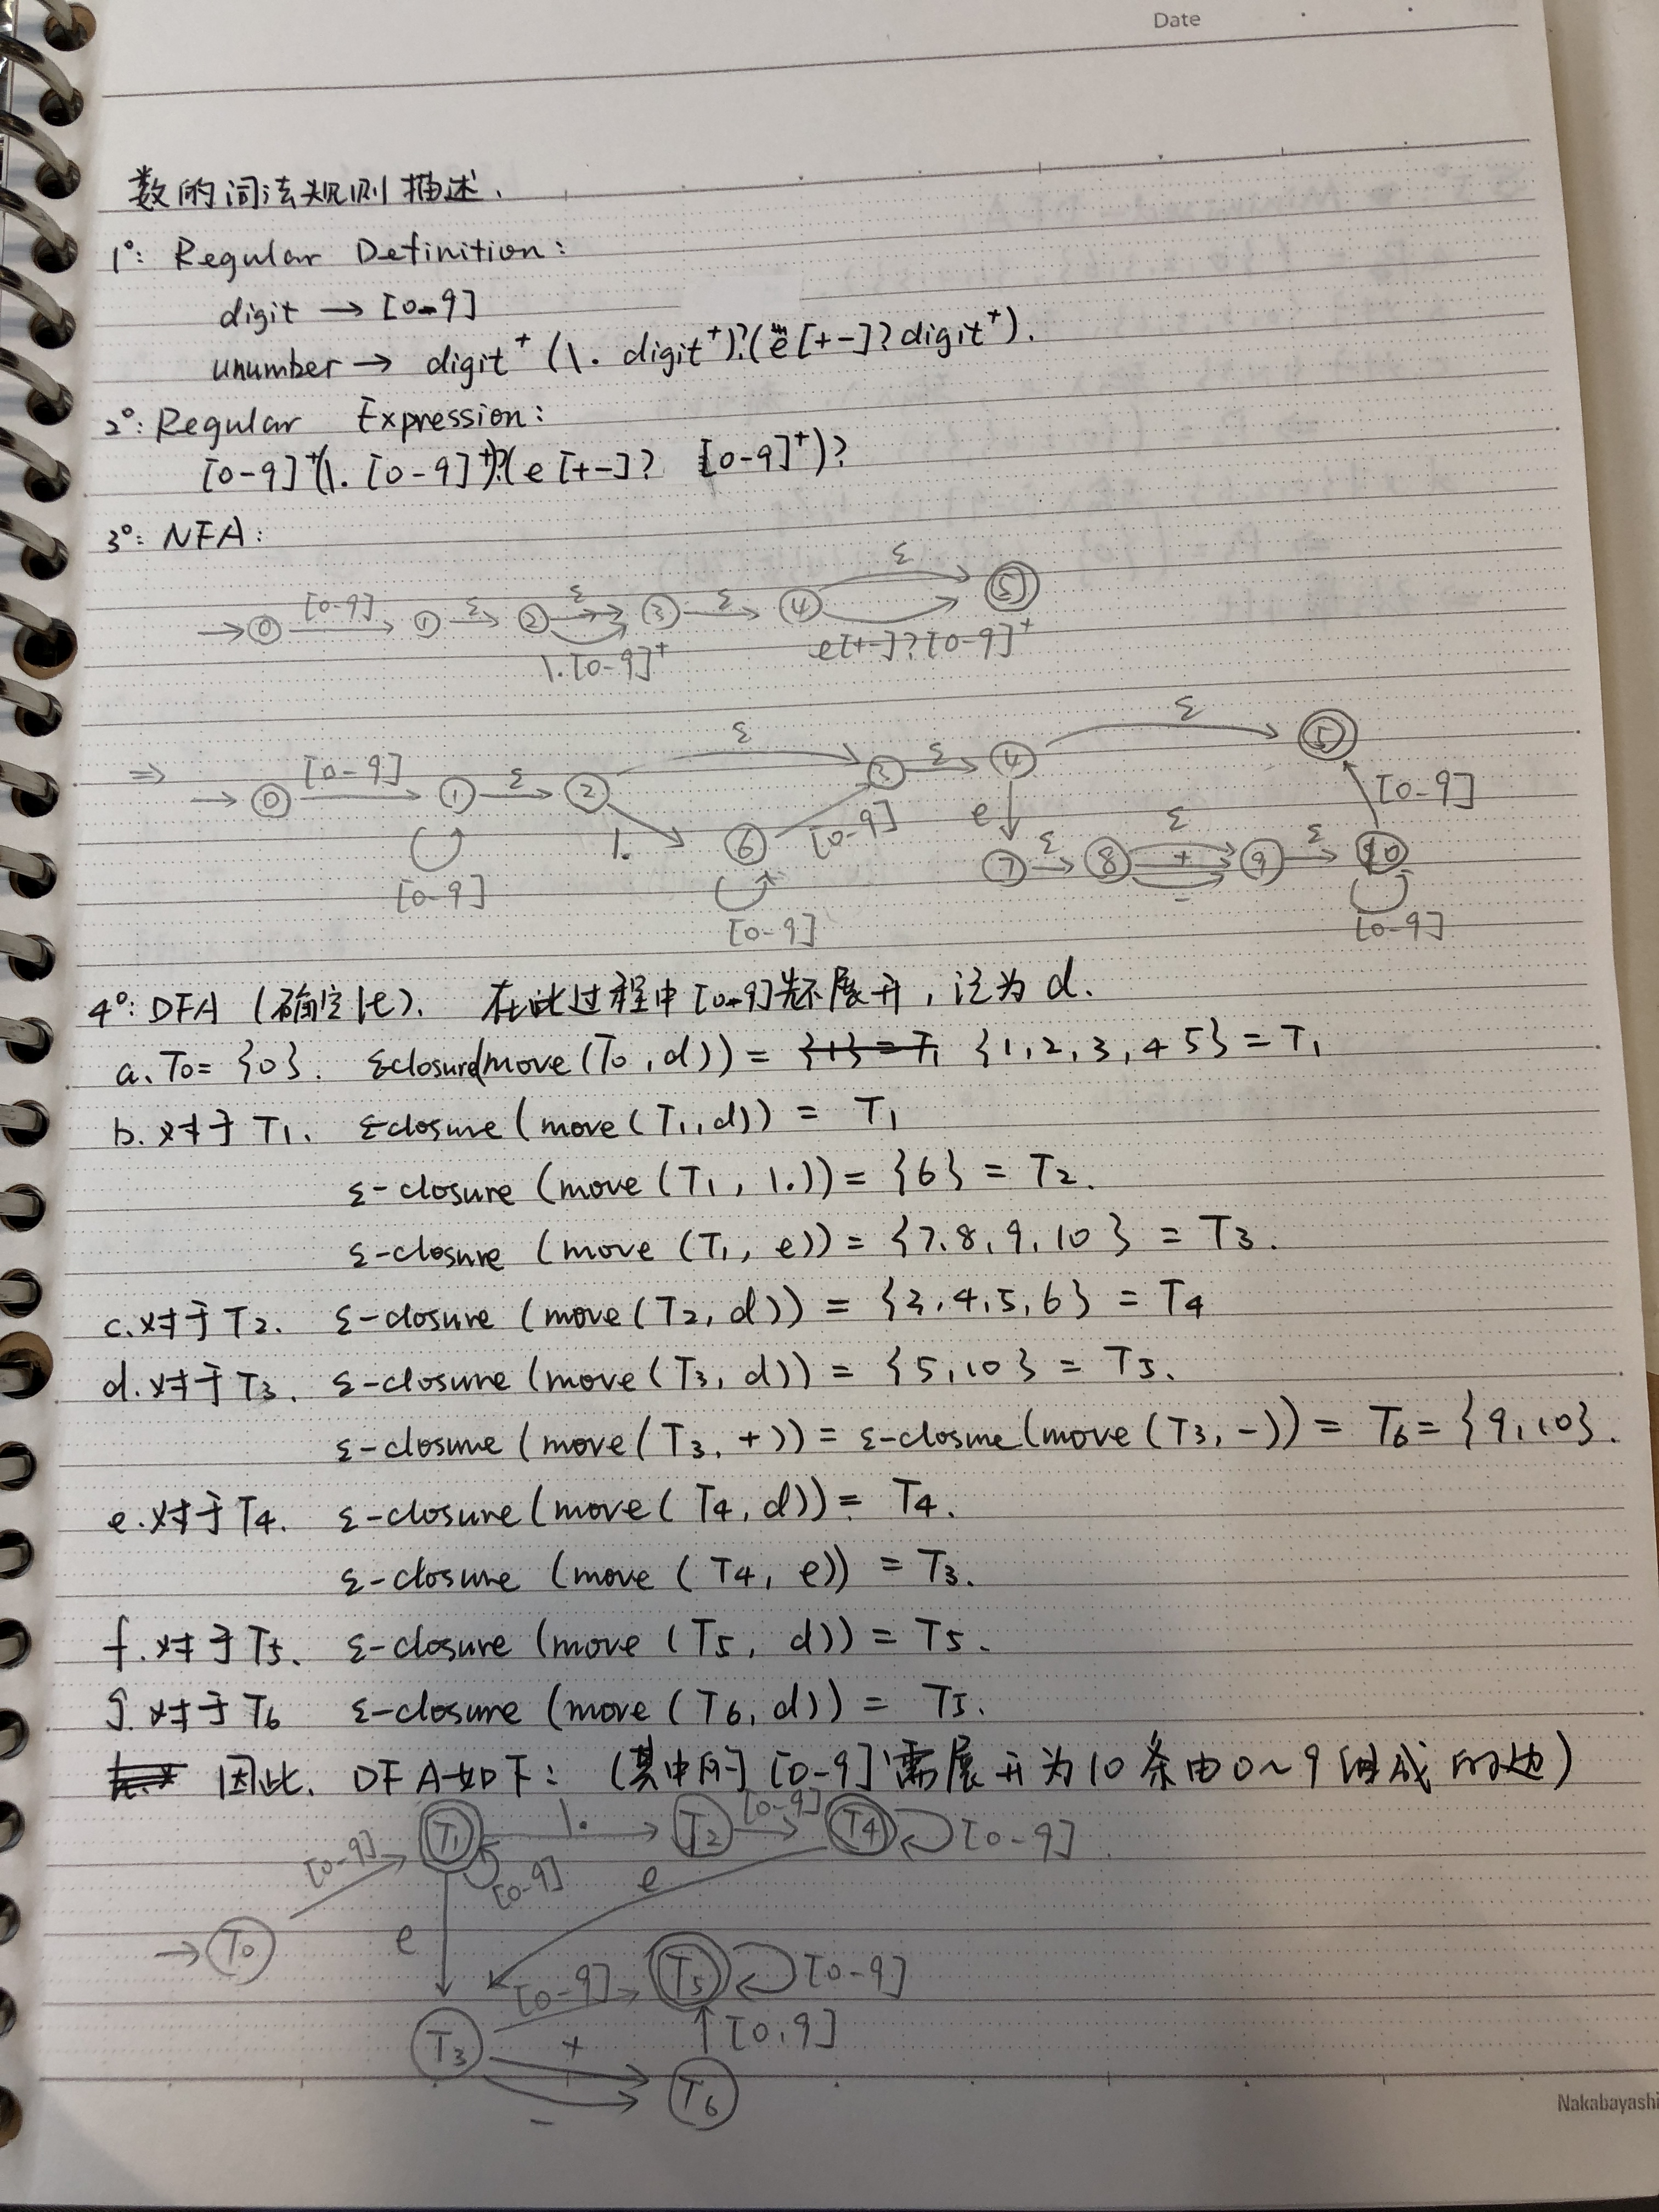 Date
数的词法规则描述.
1°: Regular Definition:
digit → [0-9]
unumber → digit⁺ (\. digit⁺)?(e[+-]?digit⁺).
2°: Regular Expression:
[0-9]⁺(\. [0-9]⁺)?(e[+-]? [0-9]⁺)?
3°: NFA:
→ 0 [0-9] 1 ε 2 ε 3 ε 4 ε 5
\.[0-9]⁺ e[+-]?[0-9]⁺
⇒ → 0 [0-9] 1 ε 2 ε 3 ε 4 ε 5
\. 6 [0-9] e 7 ε 8 ε + - 9 ε 10 [0-9]
[0-9] [0-9] [0-9]
4°: DFA (确定化). 在此过程中[0-9]先不展开, 记为 d.
a. T₀= {0}. εclosure(move(T₀,d)) = {1} = T₁ {1,2,3,4 5} = T₁
b. 对于 T₁. ε-closure (move (T₁,d)) = T₁
ε-closure (move (T₁, \.)) = {6} = T₂.
ε-closure (move (T₁, e)) = {7.8,9,10} = T₃.
c. 对于 T₂. ε-closure (move(T₂,d)) = {3,4,5,6} = T₄
d. 对于 T₃. ε-closure (move(T₃,d)) = {5,10} = T₅.
ε-closure (move(T₃,+)) = ε-closure(move(T₃,-)) = T₆ = {9,10}.
e. 对于 T₄. ε-closure (move( T₄,d)) = T₄.
ε-closure (move ( T₄, e)) = T₃.
f. 对于 T₅. ε-closure (move (T₅, d)) = T₅.
g. 对于 T₆ ε-closure (move (T₆,d)) = T₅.
因此. DFA如下: (其中的 [0-9] 需展开为10条由0~9组成的边)
T₁ \. T₂ [0-9] T₄ [0-9]
[0-9] [0-9] e
→ T₀ e T₅ [0-9]
[0-9]
T₃ + [0,9]
- T₆
Nakabayashi